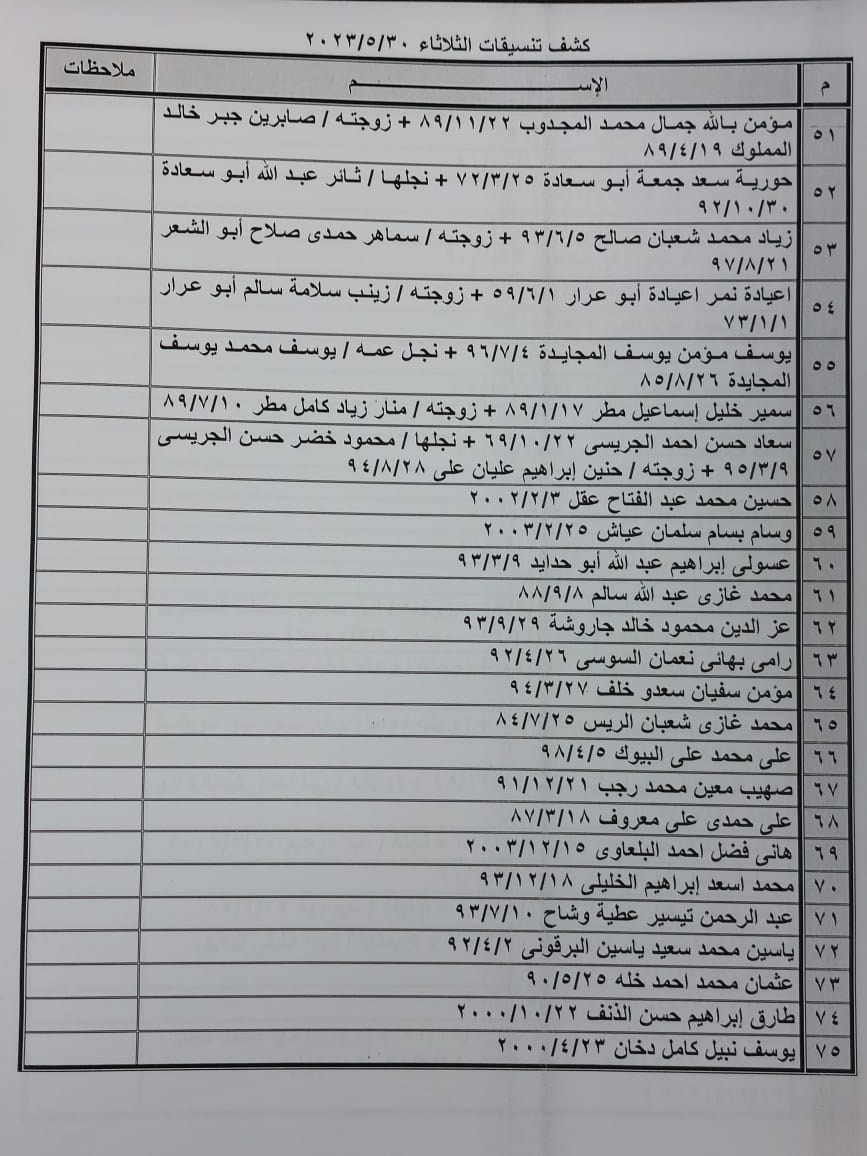 كشف تنسيقات الثلاثاء ٢٠٢٣/٥/٣٠
م الإســـم ملاحظات
٥١ مؤمن بالله جمال محمد المجدوب ٨٩/١١/٢٢ + زوجته / صابرين جبر خالد
المملوك ٨٩/٤/١٩
٥٢ حورية سعد جمعة أبو سعادة ٧٢/٣/٢٥ + نجلها / ثائر عبد الله أبو سعادة
٩٢/١٠/٣٠
٥٣ زياد محمد شعبان صالح ٩٣/٦/٥ + زوجته / سماهر حمدى صلاح أبو الشعر
٩٧/٨/٢١
٥٤ اعيادة نمر اعيادة أبو عرار ٥٩/٦/١ + زوجته / زينب سلامة سالم أبو عرار
٧٣/١/١
٥٥ يوسف مؤمن يوسف المجايدة ٩٦/٧/٤ + نجل عمه / يوسف محمد يوسف
المجايدة ٨٥/٨/٢٦
٥٦ سمير خليل إسماعيل مطر ٨٩/١/١٧ + زوجته / منار زياد كامل مطر ٨٩/٧/١٠
٥٧ سعاد حسن احمد الجريسى ٦٩/١٠/٢٢ + نجلها / محمود خضر حسن الجريسى
٩٥/٣/٩ + زوجته / حنين إبراهيم عليان على ٩٤/٨/٢٨
٥٨ حسين محمد عبد الفتاح عقل ٢٠٠٢/٢/٣
٥٩ وسام بسام سلمان عياش ٢٠٠٣/٢/٢٥
٦٠ عسولى إبراهيم عبد الله أبو حدايد ٩٣/٣/٩
٦١ محمد غازى عبد الله سالم ٨٨/٩/٨
٦٢ عز الدين محمود خالد جاروشة ٩٣/٩/٢٩
٦٣ رامى بهائى نعمان السوسى ٩٢/٤/٢٦
٦٤ مؤمن سفيان سعدو خلف ٩٤/٣/٢٧
٦٥ محمد غازى شعبان الريس ٨٤/٧/٢٥
٦٦ على محمد على البيوك ٩٨/٤/٥
٦٧ صهيب معين محمد رجب ٩١/١٢/٢١
٦٨ على حمدى على معروف ٨٧/٣/١٨
٦٩ هانى فضل احمد البلعاوى ٢٠٠٣/١٢/١٥
٧٠ محمد اسعد إبراهيم الخليلى ٩٣/١٢/١٨
٧١ عبد الرحمن تيسير عطية وشاح ٩٣/٧/١٠
٧٢ ياسين محمد سعيد ياسين البرقونى ٩٢/٤/٢
٧٣ عثمان محمد احمد خله ٩٠/٥/٢٥
٧٤ طارق إبراهيم حسن الذنف ٢٠٠٠/١٠/٢٢
٧٥ يوسف نبيل كامل دخان ٢٠٠٠/٤/٢٣